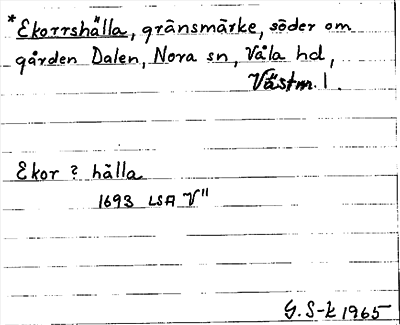 *Ekorrshälla, gränsmärke, söder om
gården Dalen, Nora sn, Våla hd,
Västm. l.
Ekor ? hälla
1693 LSA V"
G. S-k 1965